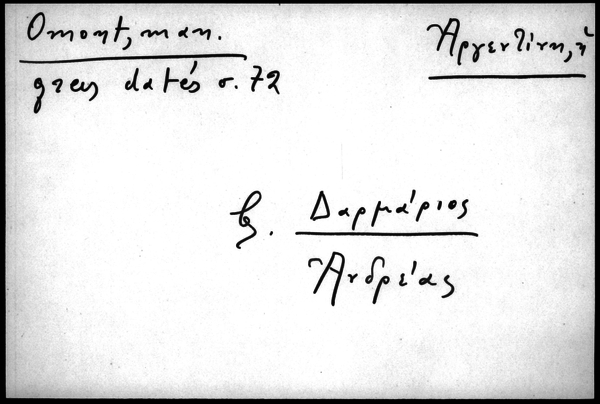 Omont, man.
grecs datés σ. 72
Ἀργεντίνη, ἡ
β. Δαρμάριος
Ἀνδρέας